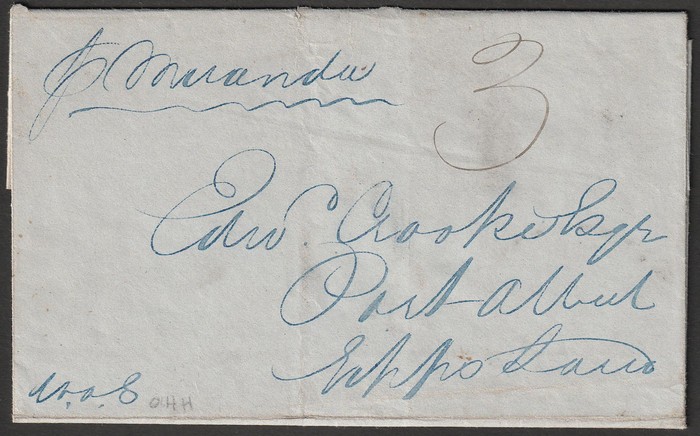 p Miranda
3
Edwd Crooke Esqr
Port Albert
Gipps Land
W.O.E
OHH